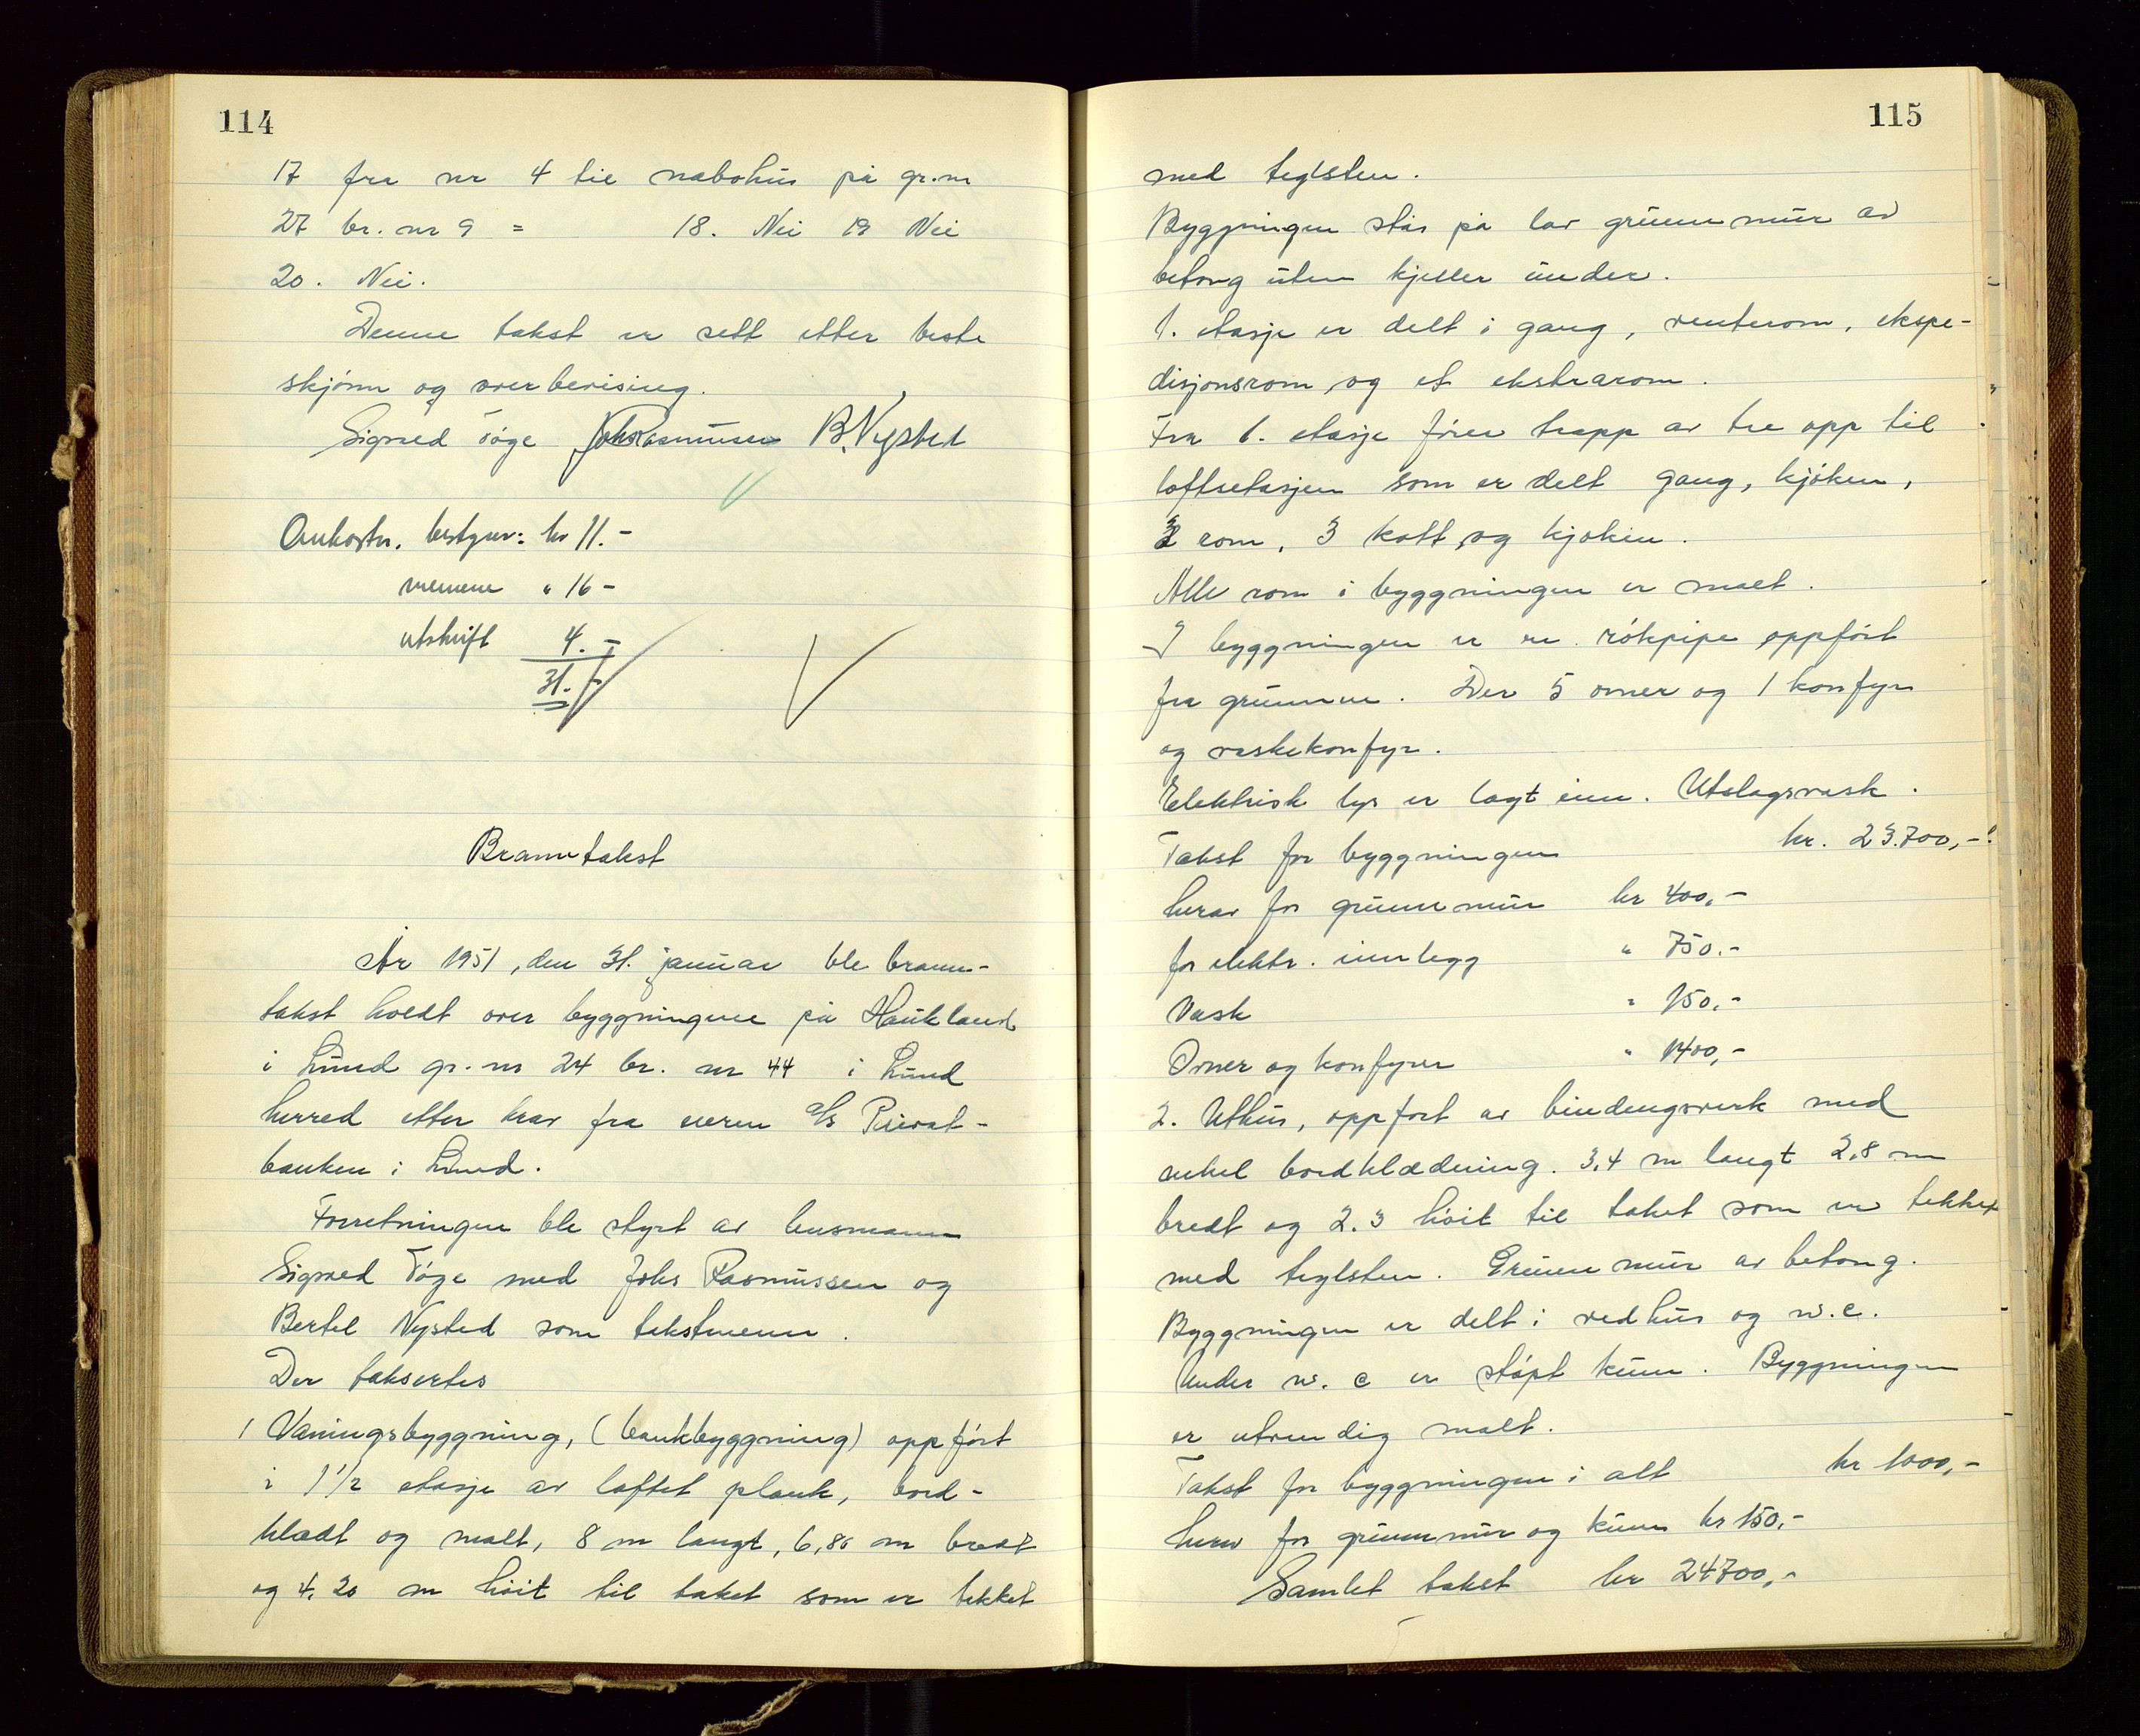 114
17 fra nr 4 til nabohus på gr.nr
27 br. nr 9 = 18. Nei 19 Nei
20. Nei.
Denne takst er sett etter beste
skjønn og overbevising.
Sigved Tøge Johs Rasmussen B. Nysted
Omkostn. bestyrer: kr 11.-
mennene " 16-
utskrift 4.-
31.-
Branntakst
År 1951, den 31. januar ble brann-
takst holdt over byggningene på Haukland
i Lund gr. nr 24 br. nr 44 i Lund
herred etter krav fra eieren A/S Privat-
banken i Lund.
Forretningen ble styrt av lensmann
Sigved Tøge med Johs Rasmussen og
Bertel Nysted som takstmenn.
Der taksertes
1 Våningsbyggning, (bankbyggning) oppført
i 1 1/2 etasje av laftet plank, bord-
klædt og malt, 8 m langt, 6,80 m bredt
og 4,20 m høit til taket som er tekket
115
med teglsten.
Byggningen står på lav grunnmur av
betong uten kjeller under.
1. etasje er delt i gang, venterom, ekspe-
disjonsrom og et ekstrarom.
Fra 1. etasje fører trapp av tre opp til
loftsetasjen som er delt gang, kjøken,
3 rom, 3 kott og kjøkin.
Alle rom i byggningen er malt.
I byggningen er en rökpipe oppført
fra grunnen. Der 5 omer og 1 komfyr
og vaskekomfyr.
Elektrisk lys er lagt inn. Utslagsvask.
Takst for byggningen kr. 23.700,-
herav for grunnmur kr 400,-
for elektr. innlegg " 750.-
Vask " 150,-
Ovner og komfyrer " 1400,-
2. Uthus, oppført av bindingsverk med
enkel bordklædning. 3,4 m langt 2,8 m
bredt og 2.3 høit til taket som er tekket
med teglsten. Grunnmur av betong.
Byggningen er delt i vedhus og w.c.
Under w. c er støpt kum. Byggningen
er utvendig malt.
Takst for byggningen i alt kr 1000,-
herav for grunnmur og kum kr 150,-
Samlet takst kr 24700,-